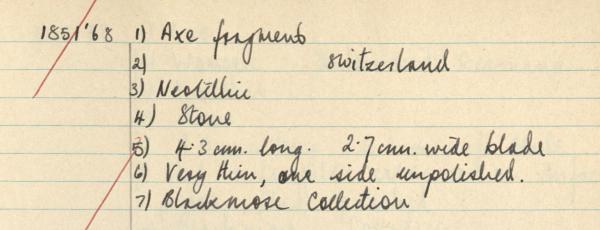 1851'68 1) Axe fragment
2) Switzerland
3) Neolithic
4) Stone
5) 4.3 cm. long. 2.7 cm. wide blade
6) Very thin, one side unpolished.
7) Blackmose Collection